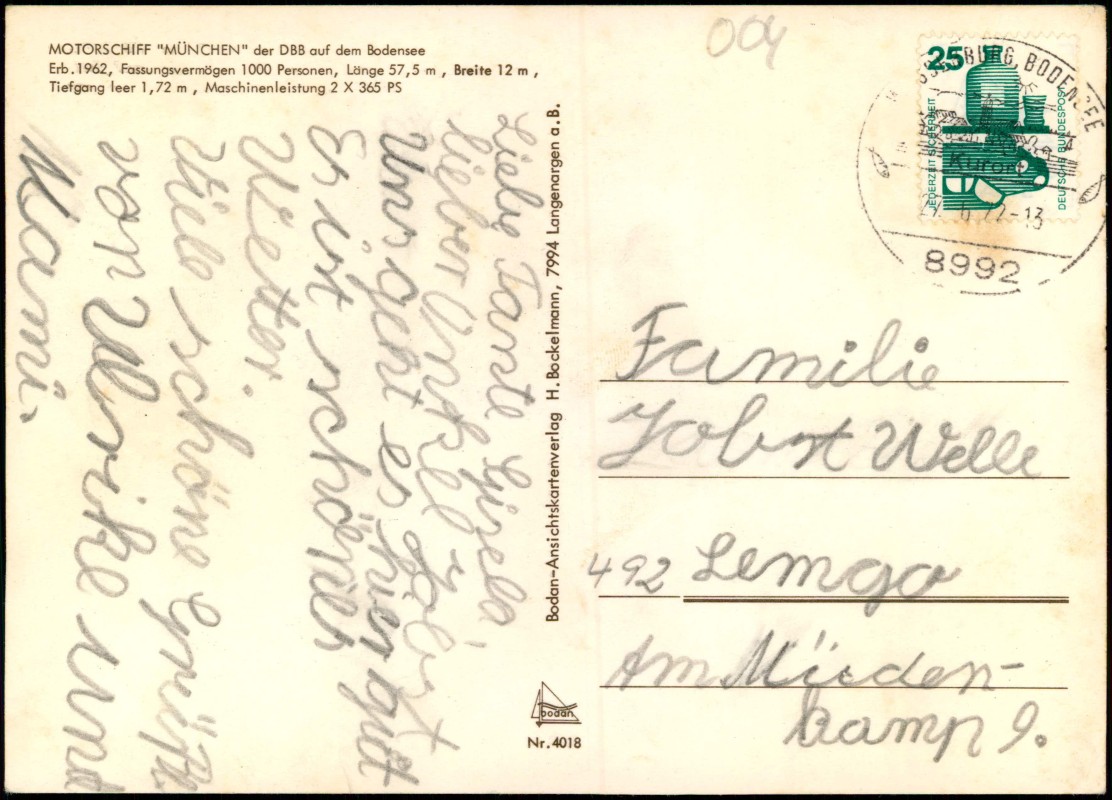 MOTORSCHIFF "MÜNCHEN" der DBB auf dem Bodensee
Erb.1962, Fassungsvermögen 1000 Personen, Länge 57,5 m , Breite 12 m ,
Tiefgang leer 1,72 m , Maschinenleistung 2 X 365 PS
Liebe Tante Gisela
lieber Onkel Jobst
Uns geht es hier gut
Es ist schönes
Wetter.
Viele schöne Grüße
von Ulrike und
Mami.
Bodan-Ansichtskartenverlag H. Bockelmann, 7994 Langenargen a.B.
bodan
Nr.4018
004
25
JEDERZEIT SICHERHEIT
DEUTSCHE BUNDESPOST
BURG, BODENSEE
Kurort
72-13
8992
Familie
Jobst Welle
492 Lemgo
Am Müeden-
kamp 9.